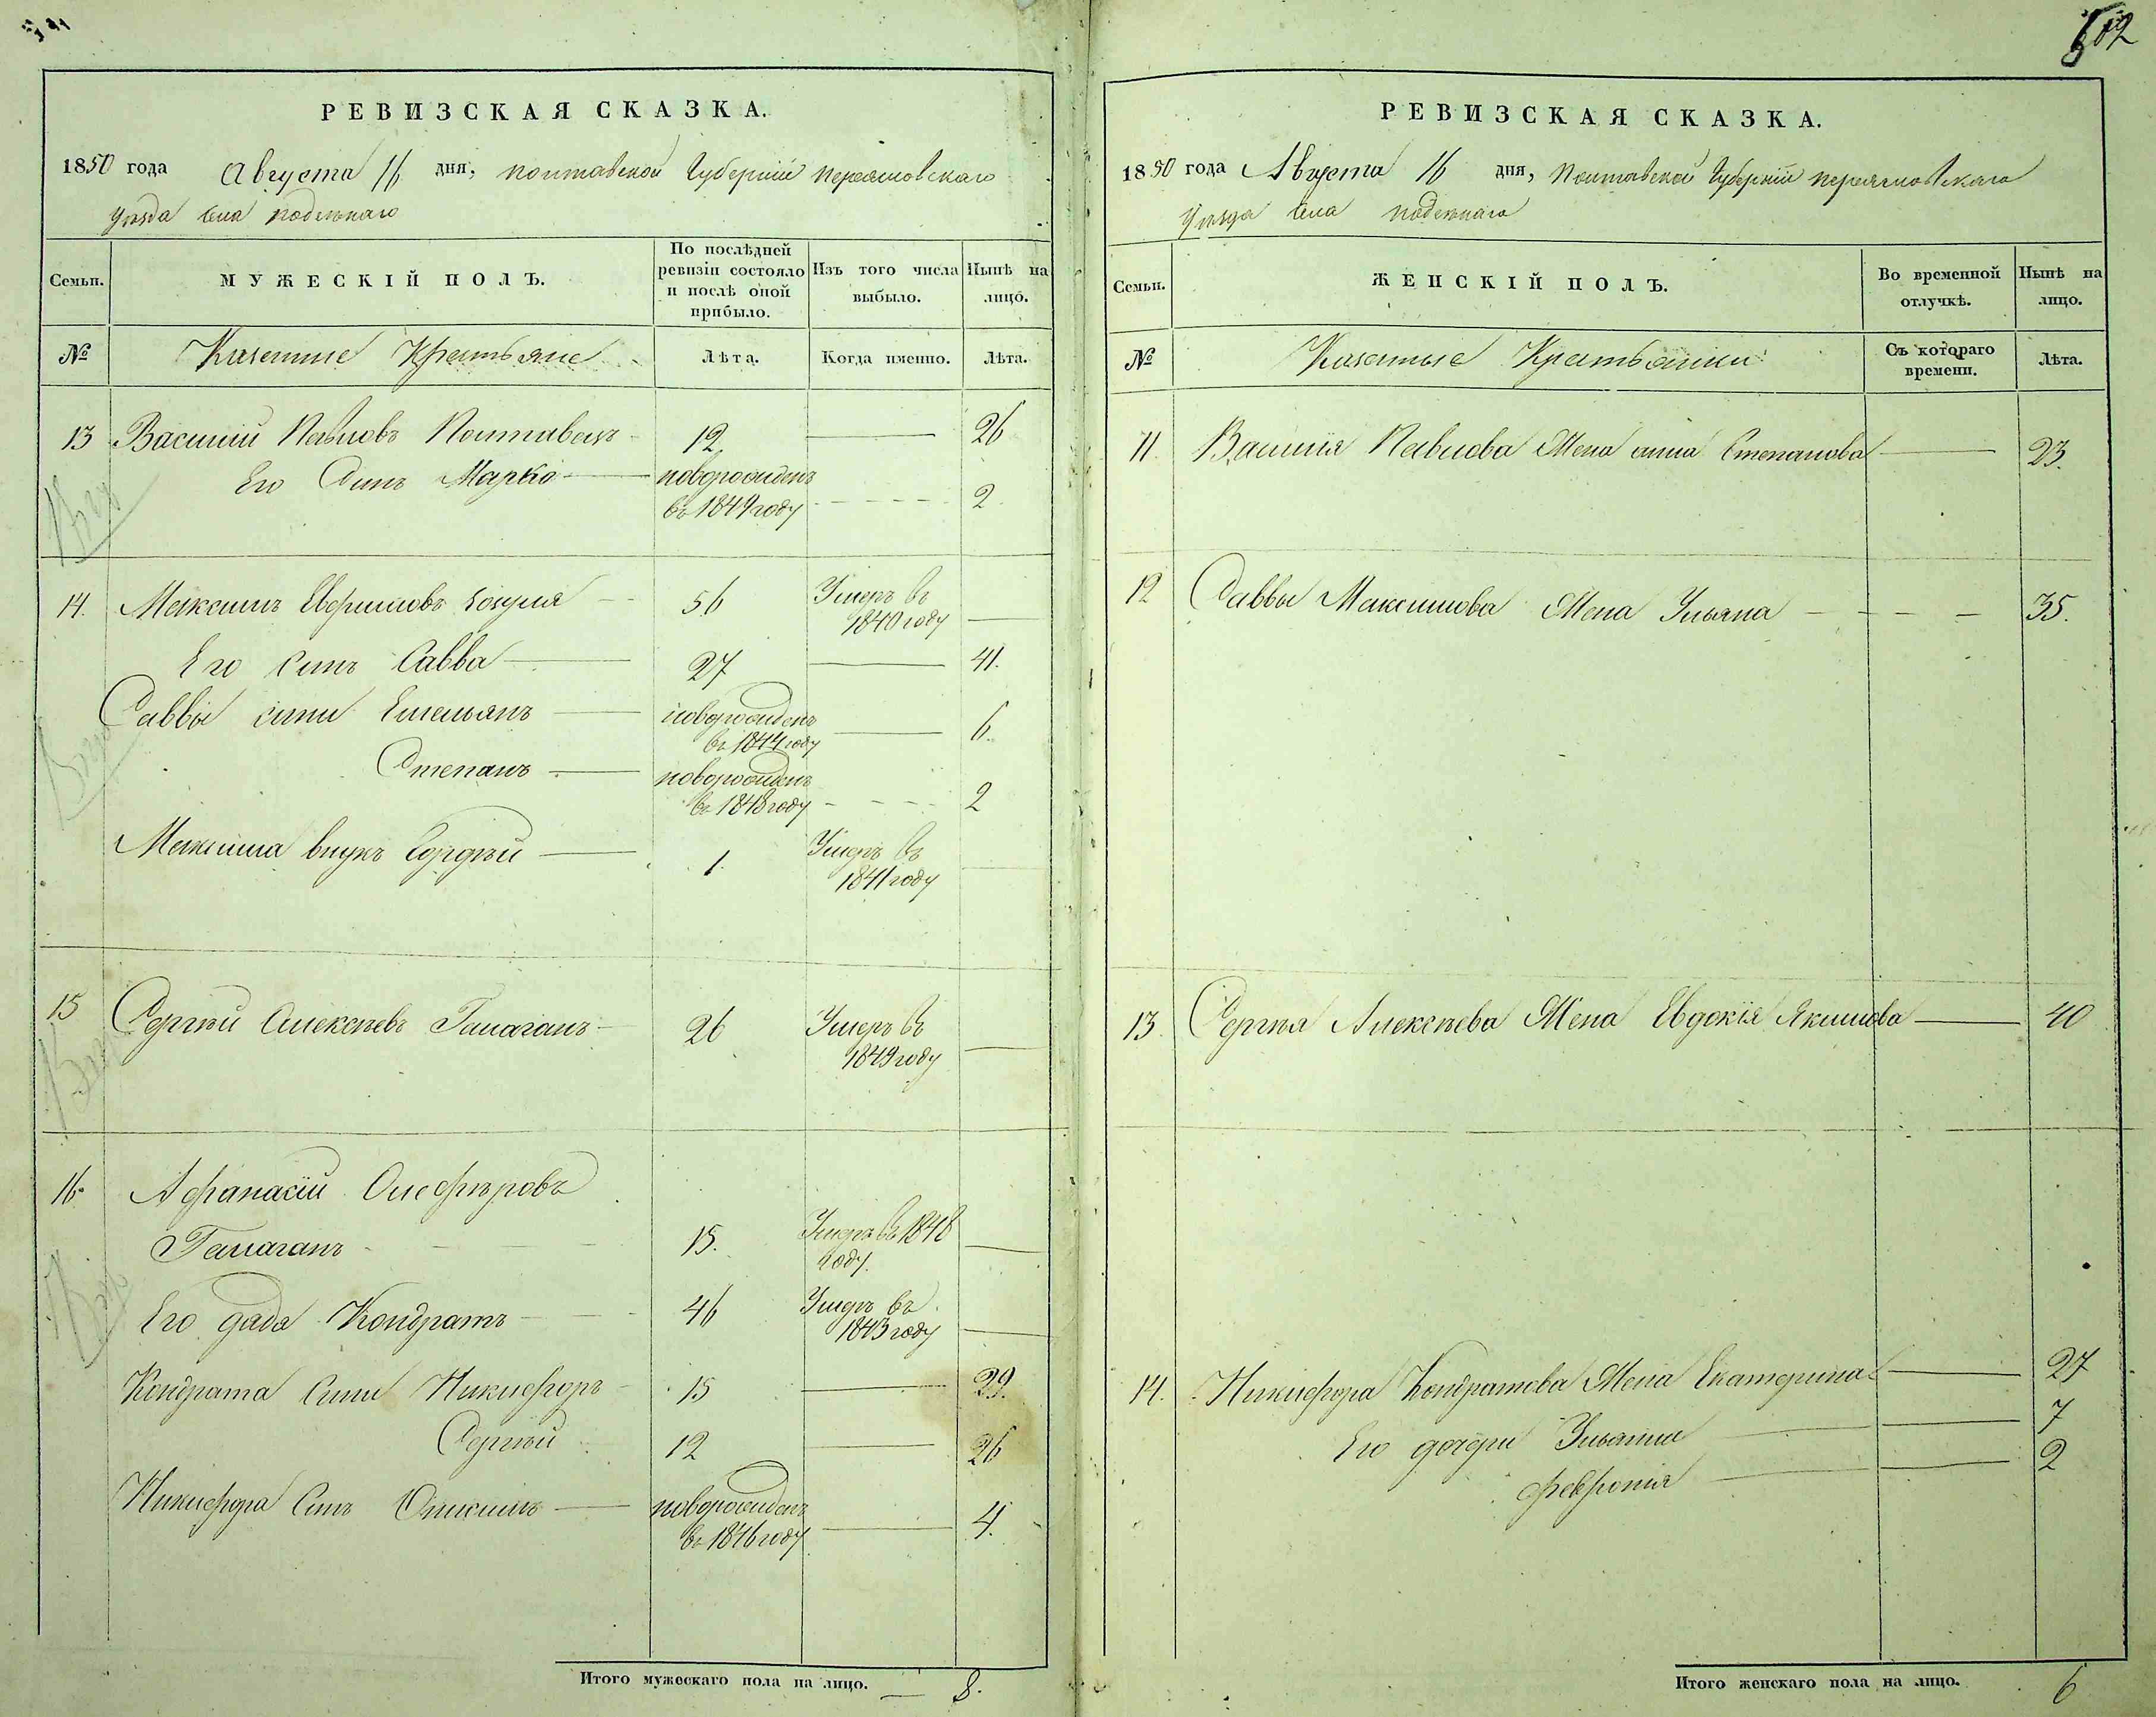 РЕВИЗСКАЯ СКАЗКА.
1850 года Августа 16 дня, Полтавской Губерніи переясловскаго
уѣзда села подсѣннаго
Семьи.
МУЖЕСКІЙ ПОЛЪ.
По послѣдней ревизіи состояло и послѣ оной прибыло.
Изъ того числа выбыло.
Нынѣ на лицо.
№
Казенные Крестьяне
Лѣта.
Когда именно.
Лѣта.
13 Василій Павловъ Полтавецъ 12 26
Его Синъ Марко новорожденъ в 1849 году 2
14. Максимъ Евфимовъ Козуля 56 Умеръ въ 1840 году
Его Синъ Савва 27 41.
Саввы сини Емельянъ новорожденъ въ 1844 году 6.
Степанъ новорожденъ въ 1848 году 2
Максима внукъ Сергѣй 1. Умеръ въ 1841 году
15 Сергѣй Алексѣевъ Галаганъ 26 Умеръ въ 1849 году
16. Афанасій Олефѣровъ
Галаганъ 15. Умеръ въ 1848 году.
Его дядя Кондратъ 46 Умеръ въ 1843 году
Кондрата Сини Никифоръ 15 29.
Сергѣй 12 26
Никифора Синъ Онисимъ новорожденъ въ 1846 году 4.
Итого мужескаго пола на лицо. — 8.
602
РЕВИЗСКАЯ СКАЗКА.
1850 года Августа 16 дня, Полтавской Губерніи переясловскаго
Уѣзда села
Семьи.
ЖЕНСКІЙ ПОЛЪ.
Во временной отлучкѣ.
Нынѣ на лицо.
№
Казенные Крестьянки
Съ котораго времени.
Лѣта.
11. Василія Павлова Жена анна Степанова 23.
12 Саввы Максимова Жена Ульяна 35.
13. Сергѣя Алексѣева Жена Евдокія Якимова 40
14. Никифора Кондратова Жена Екатерина 27
Его дочери Ульяна 7
Февронія 2
Итого женскаго пола на лицо. 6